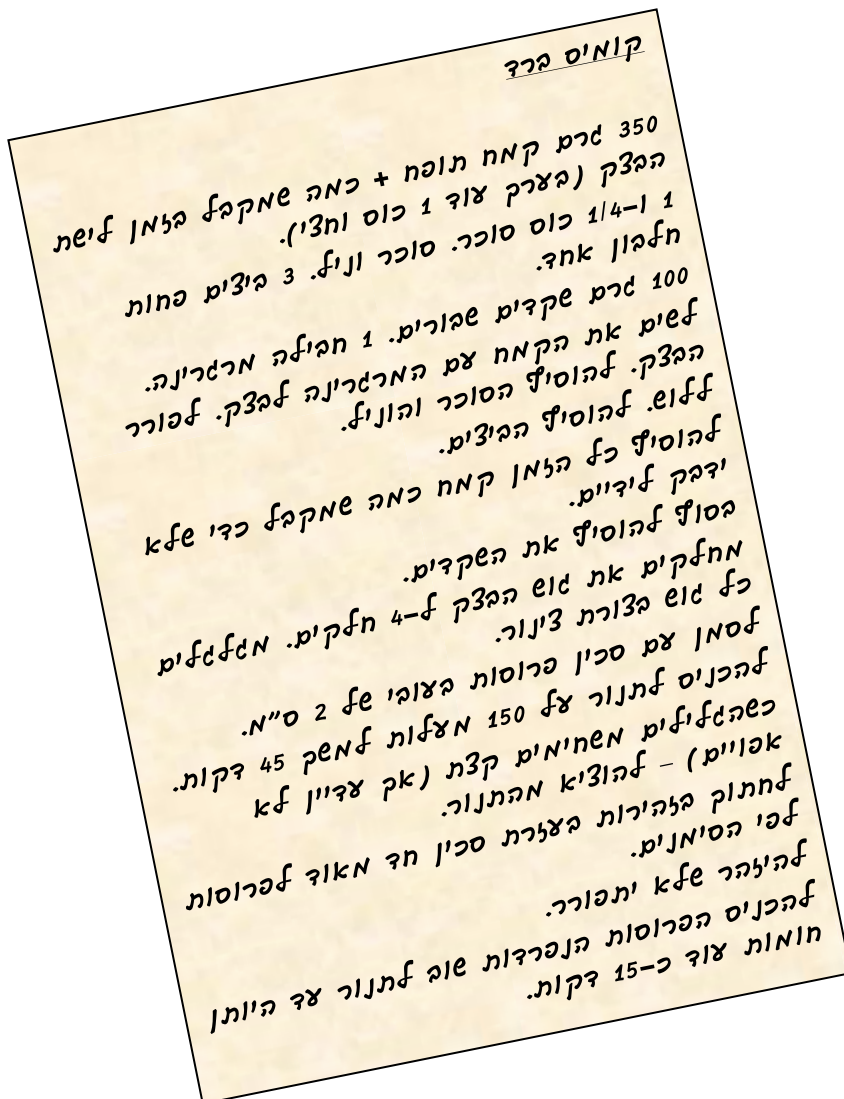 קומיס ברד
350 גרם קמח תופח + כמה שמקבל בזמן לישת
הבצק (בערך עוד 1 כוס וחצי).
1 ו-1/4 כוס סוכר. סוכר וניל. 3 ביצים פחות
חלבון אחד.
100 גרם שקדים שבורים. 1 חבילה מרגרינה.
לשים את הקמח עם המרגרינה לבצק. לפורר
הבצק. להוסיף הסוכר והוניל.
ללוש. להוסיף הביצים.
להוסיף כל הזמן קמח כמה שמקבל כדי שלא
ידבק לידיים.
בסוף להוסיף את השקדים.
מחלקים את גוש הבצק ל-4 חלקים. מגלגלים
כל גוש בצורת צינור.
לסמן עם סכין פרוסות בעובי של 2 ס"מ.
להכניס לתנור על 150 מעלות למשך 45 דקות.
כשהגלילים משחימים קצת (אך עדיין לא
אפויים) – להוציא מהתנור.
לחתוך בזהירות בעזרת סכין חד מאוד לפרוסות
לפי הסימנים.
להיזהר שלא יתפורר.
להכניס הפרוסות הנפרדות שוב לתנור עד היותן
חומות עוד כ-15 דקות.